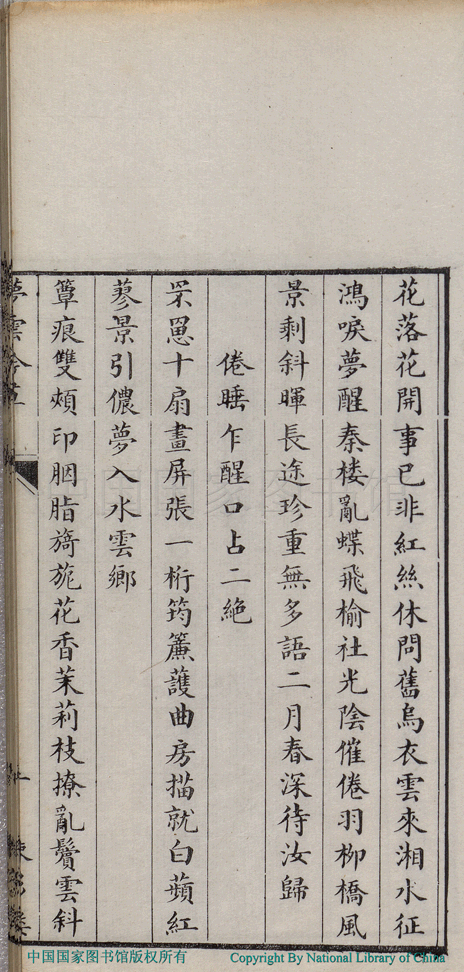 花落花開事已非紅絲休問舊烏衣雲來湘水征
鴻唳夢醒秦楼亂蝶飛榆社光陰催倦羽柳橋風
景剩斜暉長途珍重無多語二月春深待汝歸
倦睡乍醒口占二絶
罘罳十扇畫屏張一桁筠簾護曲房描就白蘋紅
蓼景引儂夢入水雲鄉
簟痕雙頰印胭脂旖旎花香茉莉枝撩亂鬢雲斜
中国国家图书馆版权所有
Copyright By National Library of China